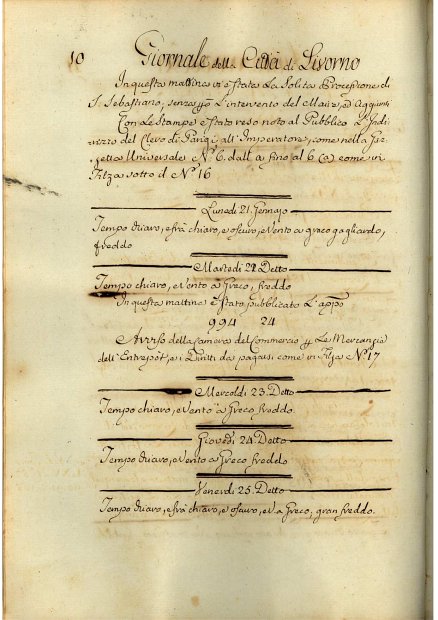 10 Giornale della Città di Livorno
In questa mattina vi è stata La Solita Processione di
S. Sebastiano, senza però L'intervento del Maire, ed Aggiunti
Con Le Stampe è stato reso noto al Pubblico L'Indi-
rizzo del Clero di Parigi all'Imperatore, come nella Gaz-
zetta Universale N.° 6. dall' a fino al 6 (a) come in
Filza sotto il N.° 16
Lunedi 21. Gennajo
Tempo chiaro, e frà chiaro, e oscuro, e Vento a greco gagliardo,
e freddo
Martedi 22. Detto
Tempo chiaro, e Vento a Greco, freddo
In questa mattina è stato pubblicato L'app.°
994 24
Avviso della Camera del Commercio per Le Mercanzie
dell'Entrepôt, e i Diritti da pagarsi come in Filza N.° 17
Mercoldi 23. Detto
Tempo chiaro, e Vento a Greco freddo
Giovedi 24. Detto
Tempo chiaro, e Vento a Greco freddo
Venerdi 25. Detto
Tempo chiaro, e frà chiaro, e oscuro, e V.° a Greco, gran freddo.